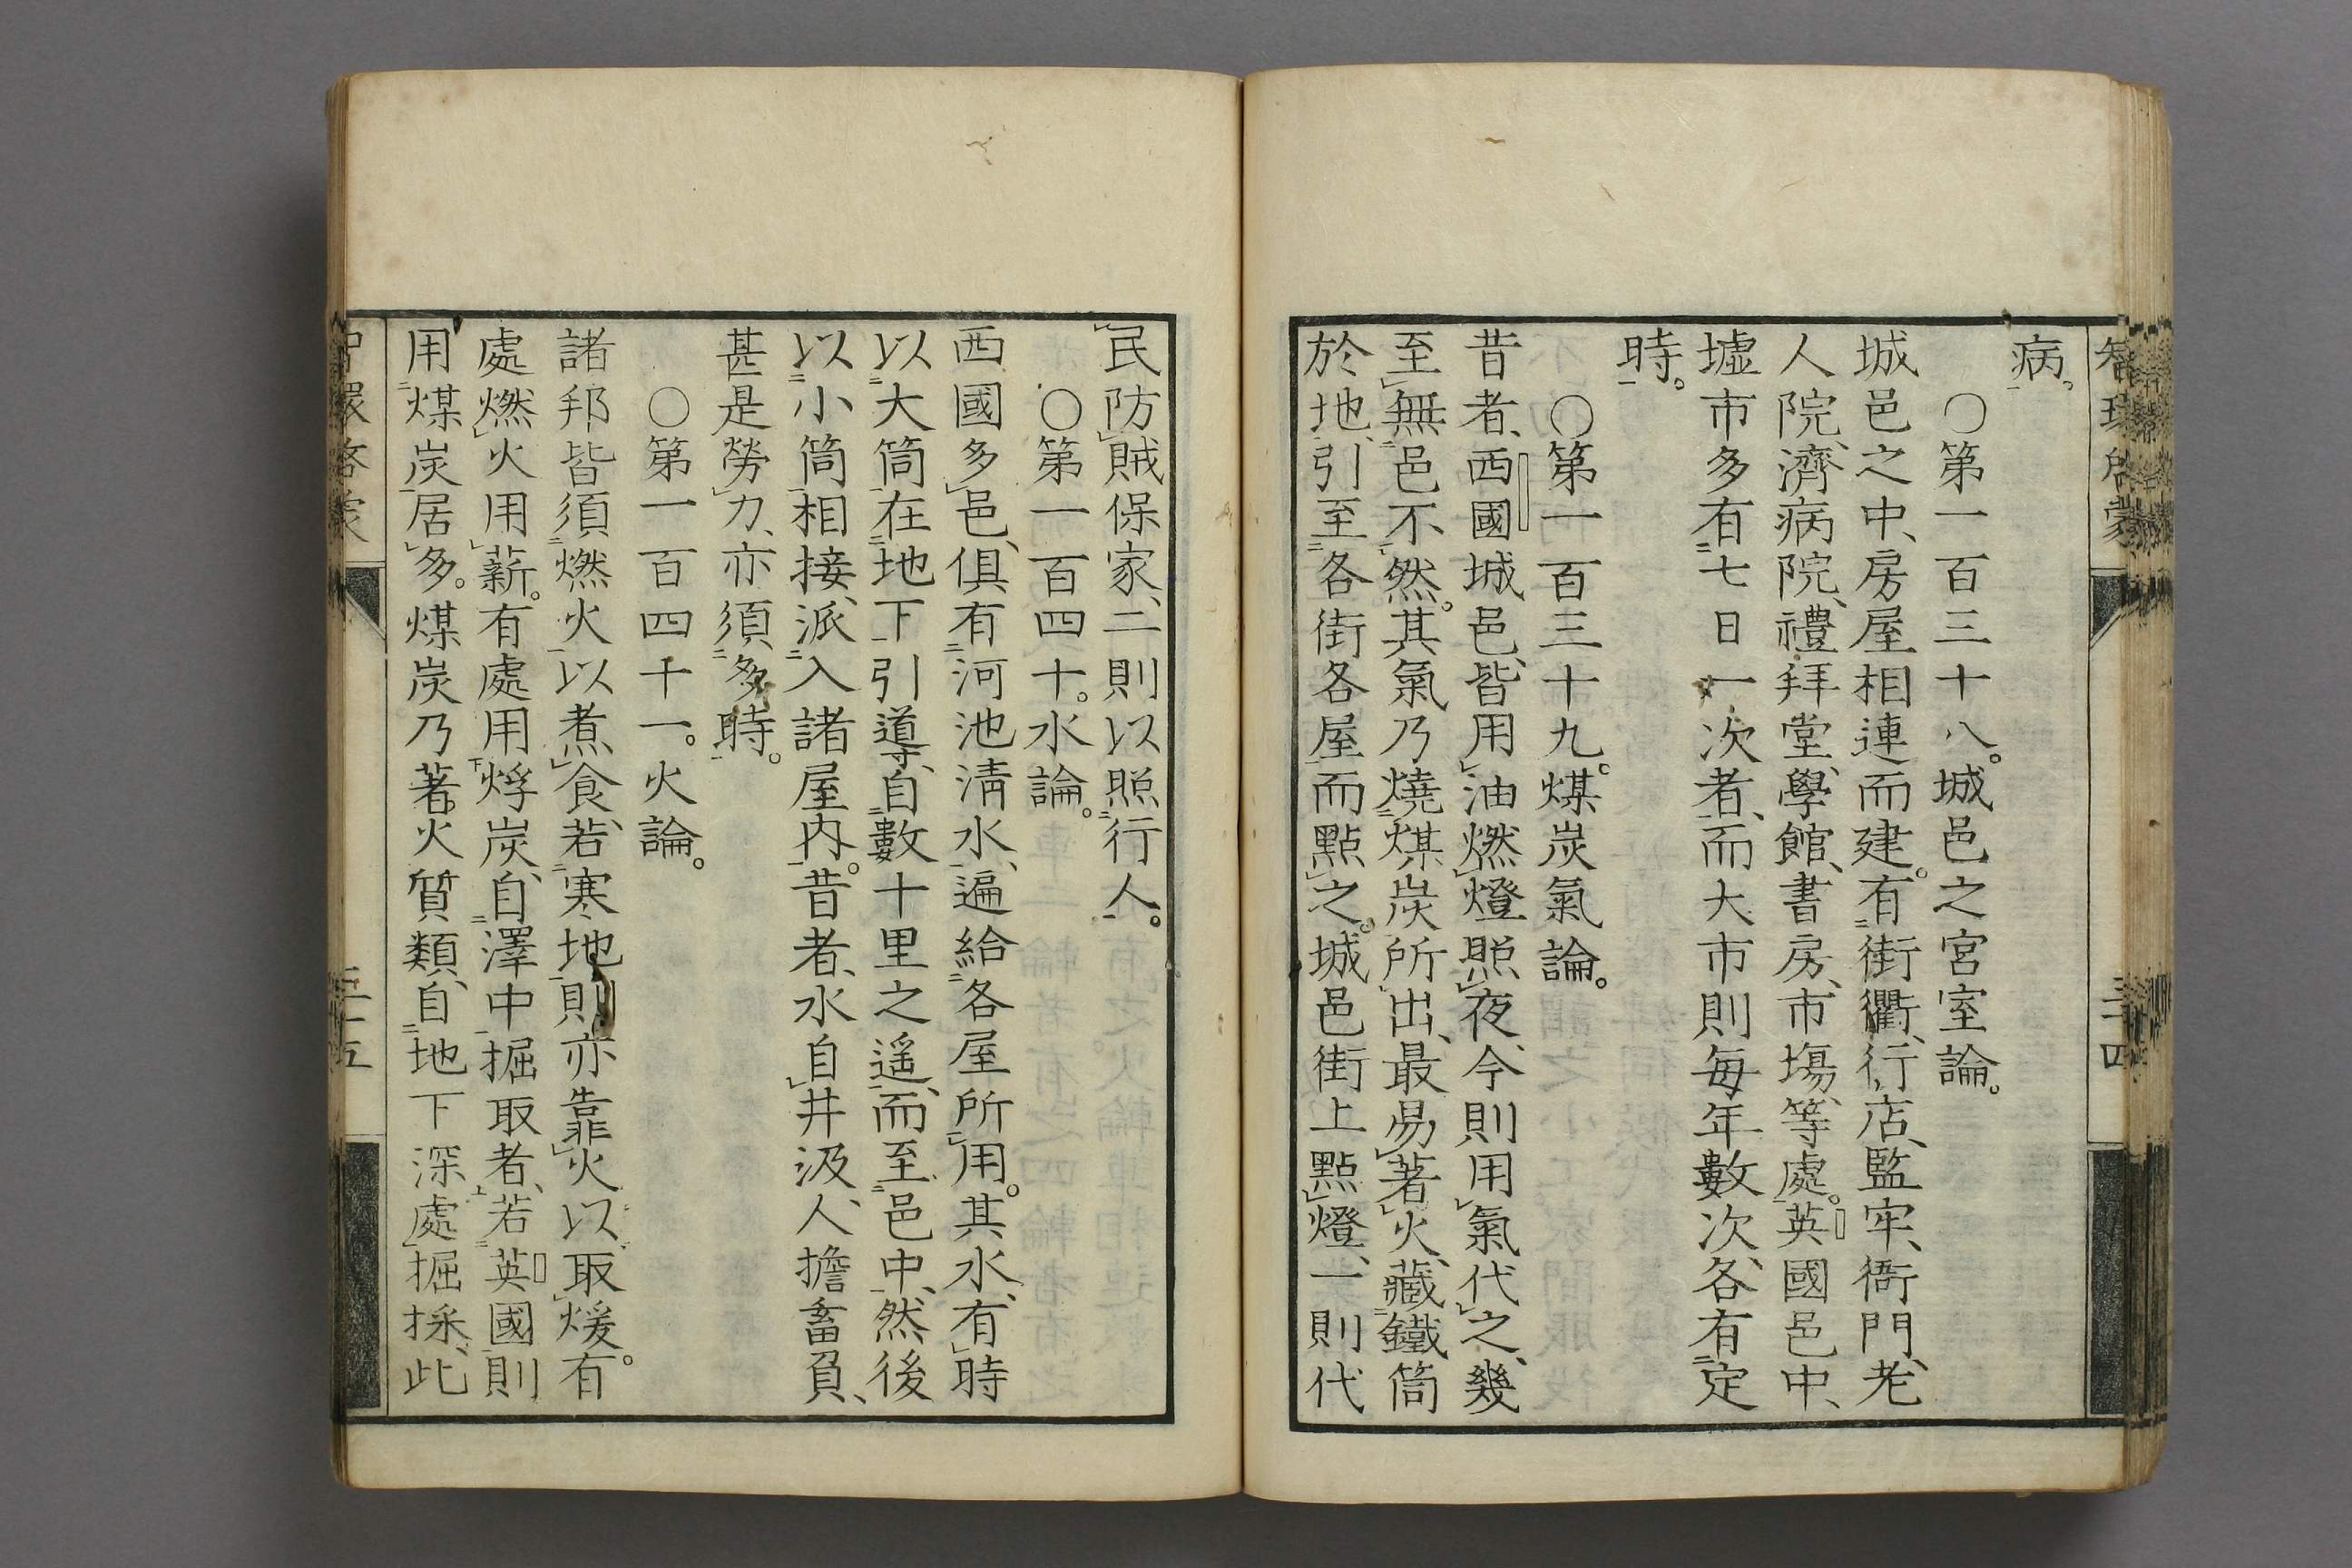 病。
○第一百三十八。城邑之宮室論。
城邑之中、房屋相連而建。有街衢、行店、監牢、衙門、老
人院、濟病院、禮拜堂、學館、書房、市塲、等處。英國邑中、
墟市多有七日一次者、而大市則每年數次、各有定
時。
○第一百三十九。煤炭氣論。
昔者、西國城邑、皆用油燃燈照夜、今則用氣代之、幾
至無邑不然。其氣乃燒煤炭所出、最易著火、藏鐵筒
於地、引至各街各屋而點之。城邑街上點燈、一則代
民防賊保家、二則以照行人。
○第一百四十。水論。
西國多邑、俱有河池淸水、遍給各屋所用。其水、有時
以大筒在地下引導、自數十里之遙、而至邑中、然後
以小筒相接、派入諸屋內。昔者、水自井汲、人擔畜負、
甚是勞力、亦須多時。
○第一百四十一。火論。
諸邦皆須燃火以煮食、若寒地則亦靠火以取煖。有
處燃火用薪。有處用烰炭、自澤中掘取者、若英國則
用煤炭居多。煤炭乃著火質類、自地下深處掘採、此
智環啓蒙
三十四
三十五